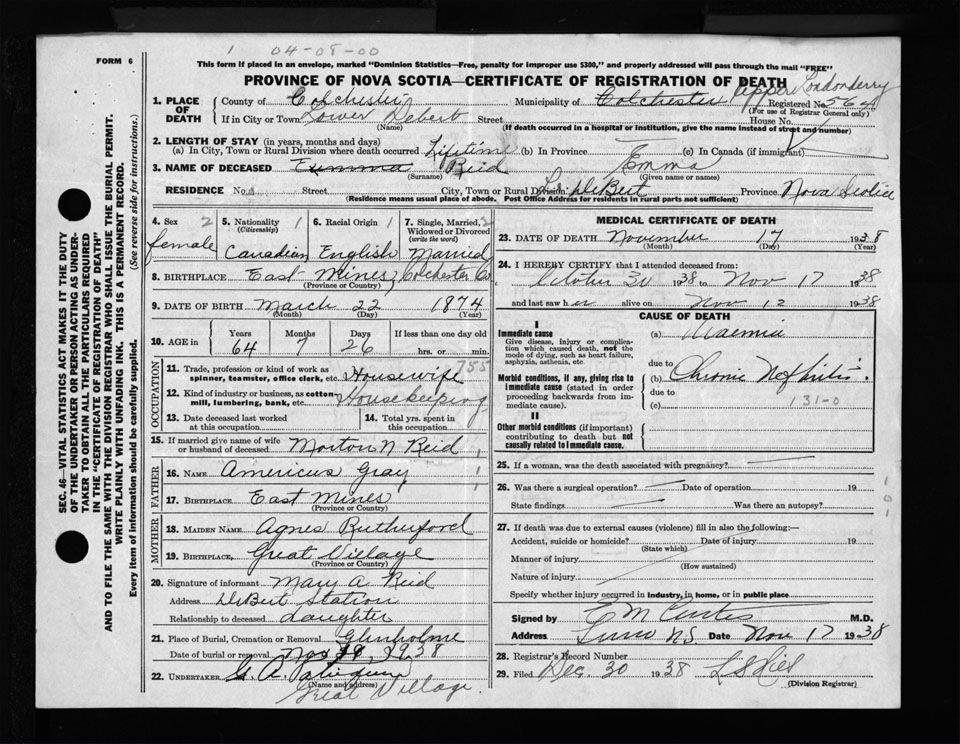 1 04-08-00
FORM 6
This form if placed in an envelope, marked "Dominion Statistics—Free, penalty for improper use $300," and properly addressed will pass through the mail "FREE"
PROVINCE OF NOVA SCOTIA—CERTIFICATE OF REGISTRATION OF DEATH
SEC. 46—VITAL STATISTICS ACT MAKES IT THE DUTY
OF THE UNDERTAKER OR PERSON ACTING AS UNDER-
TAKER TO OBTAIN ALL THE PARTICULARS REQUIRED
IN THE "CERTIFICATE OF REGISTRATION OF DEATH"
AND TO FILE THE SAME WITH THE DIVISION REGISTRAR WHO SHALL ISSUE THE BURIAL PERMIT.
WRITE PLAINLY WITH UNFADING INK. THIS IS A PERMANENT RECORD.
Every item of information should be carefully supplied. (See reverse side for instructions.)
1. PLACE OF DEATH County of Colchester Municipality of Colchester Upper Londonderry Registered No. 564
(For use of Registrar General only)
If in City or Town Lower Debert Street House No.
(Name) (If death occurred in a hospital or institution, give the name instead of street and number)
2. LENGTH OF STAY (in years, months and days)
(a) In City, Town or Rural Division where death occurred Lifetime (b) In Province (c) In Canada (if immigrant)
3. NAME OF DECEASED Emma Reid Emma
(Surname) (Given name or names)
RESIDENCE No. Street City, Town or Rural Division L. DeBert Province Nova Scotia
(Residence means usual place of abode. Post Office Address for residents in rural parts not sufficient)
4. Sex 2 5. Nationality 1 6. Racial Origin 1 7. Single, Married, 2
(Citizenship) Widowed or Divorced
(write the word)
female Canadian English Married
8. BIRTHPLACE East Mines, Colchester Co.
(Province or Country)
9. DATE OF BIRTH March 22 1874
(Month) (Day) (Year)
10. AGE in Years Months Days If less than one day old
64 7 26 hrs. or min.
OCCUPATION
11. Trade, profession or kind of work as 755
spinner, teamster, office clerk, etc. Housewife
12. Kind of industry or business, as cotton-
mill, lumbering, bank, etc. Housekeeping
13. Date deceased last worked at this occupation 14. Total yrs. spent in this occupation
15. If married give name of wife
or husband of deceased Morton N Reid
FATHER
16. NAME Americus Gray
17. BIRTHPLACE East Mines
(Province or Country)
MOTHER
18. MAIDEN NAME Agnes Rutherford
19. BIRTHPLACE Great Village
(Province or Country)
20. Signature of informant Mary A Reid
Address DeBert Station
Relationship to deceased daughter
21. Place of Burial, Cremation or Removal Glenholme
Date of burial or removal Nov 1938
22. UNDERTAKER
(Name and address)
Great Village
MEDICAL CERTIFICATE OF DEATH
23. DATE OF DEATH November 17 1938
(Month) (Day)
24. I HEREBY CERTIFY that I attended deceased from:
October 30 1938 to Nov 17 1938
and last saw her alive on Nov 12 1938
CAUSE OF DEATH
I
Immediate cause (a) Uaemia
Give disease, injury or complica-
tion which caused death, not the
mode of dying, such as heart failure,
asphyxia, asthenia, etc. due to
Morbid conditions, if any, giving rise to (b) Chronic Nephritis.
immediate cause (stated in order due to
proceeding backwards from im-
mediate cause). (c) 131-0
II
Other morbid conditions (if important)
contributing to death but not
causally related to immediate cause.
25. If a woman, was the death associated with pregnancy?
26. Was there a surgical operation? Date of operation 19
State findings Was there an autopsy?
27. If death was due to external causes (violence) fill in also the following:—
Accident, suicide or homicide? Date of injury 19
(State which)
Manner of injury
(How sustained)
Nature of injury
Specify whether injury occurred in industry, in home, or in public place
Signed by E M Curtis M.D.
Address Truro N.S. Date Nov 17 1938
28. Registrar's Record Number
29. Filed Dec. 30 1938
(Division Registrar)